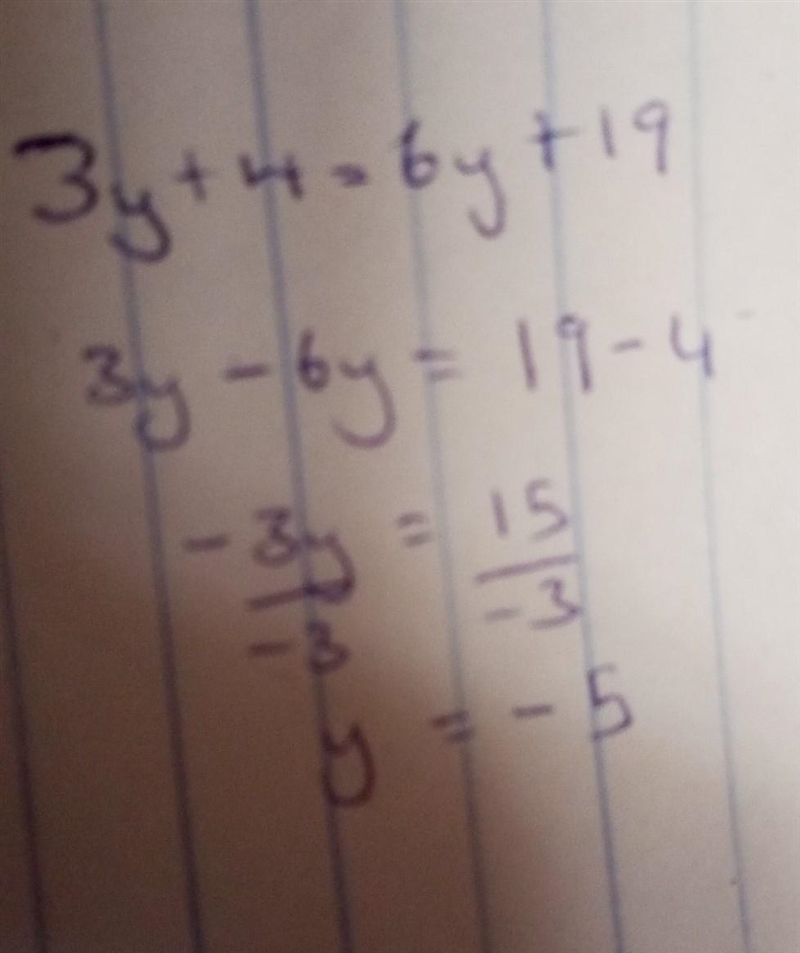 3y + 4 = 6y + 19
3y - 6y = 19 - 4
-3y = 15
-3 -3
y = -5